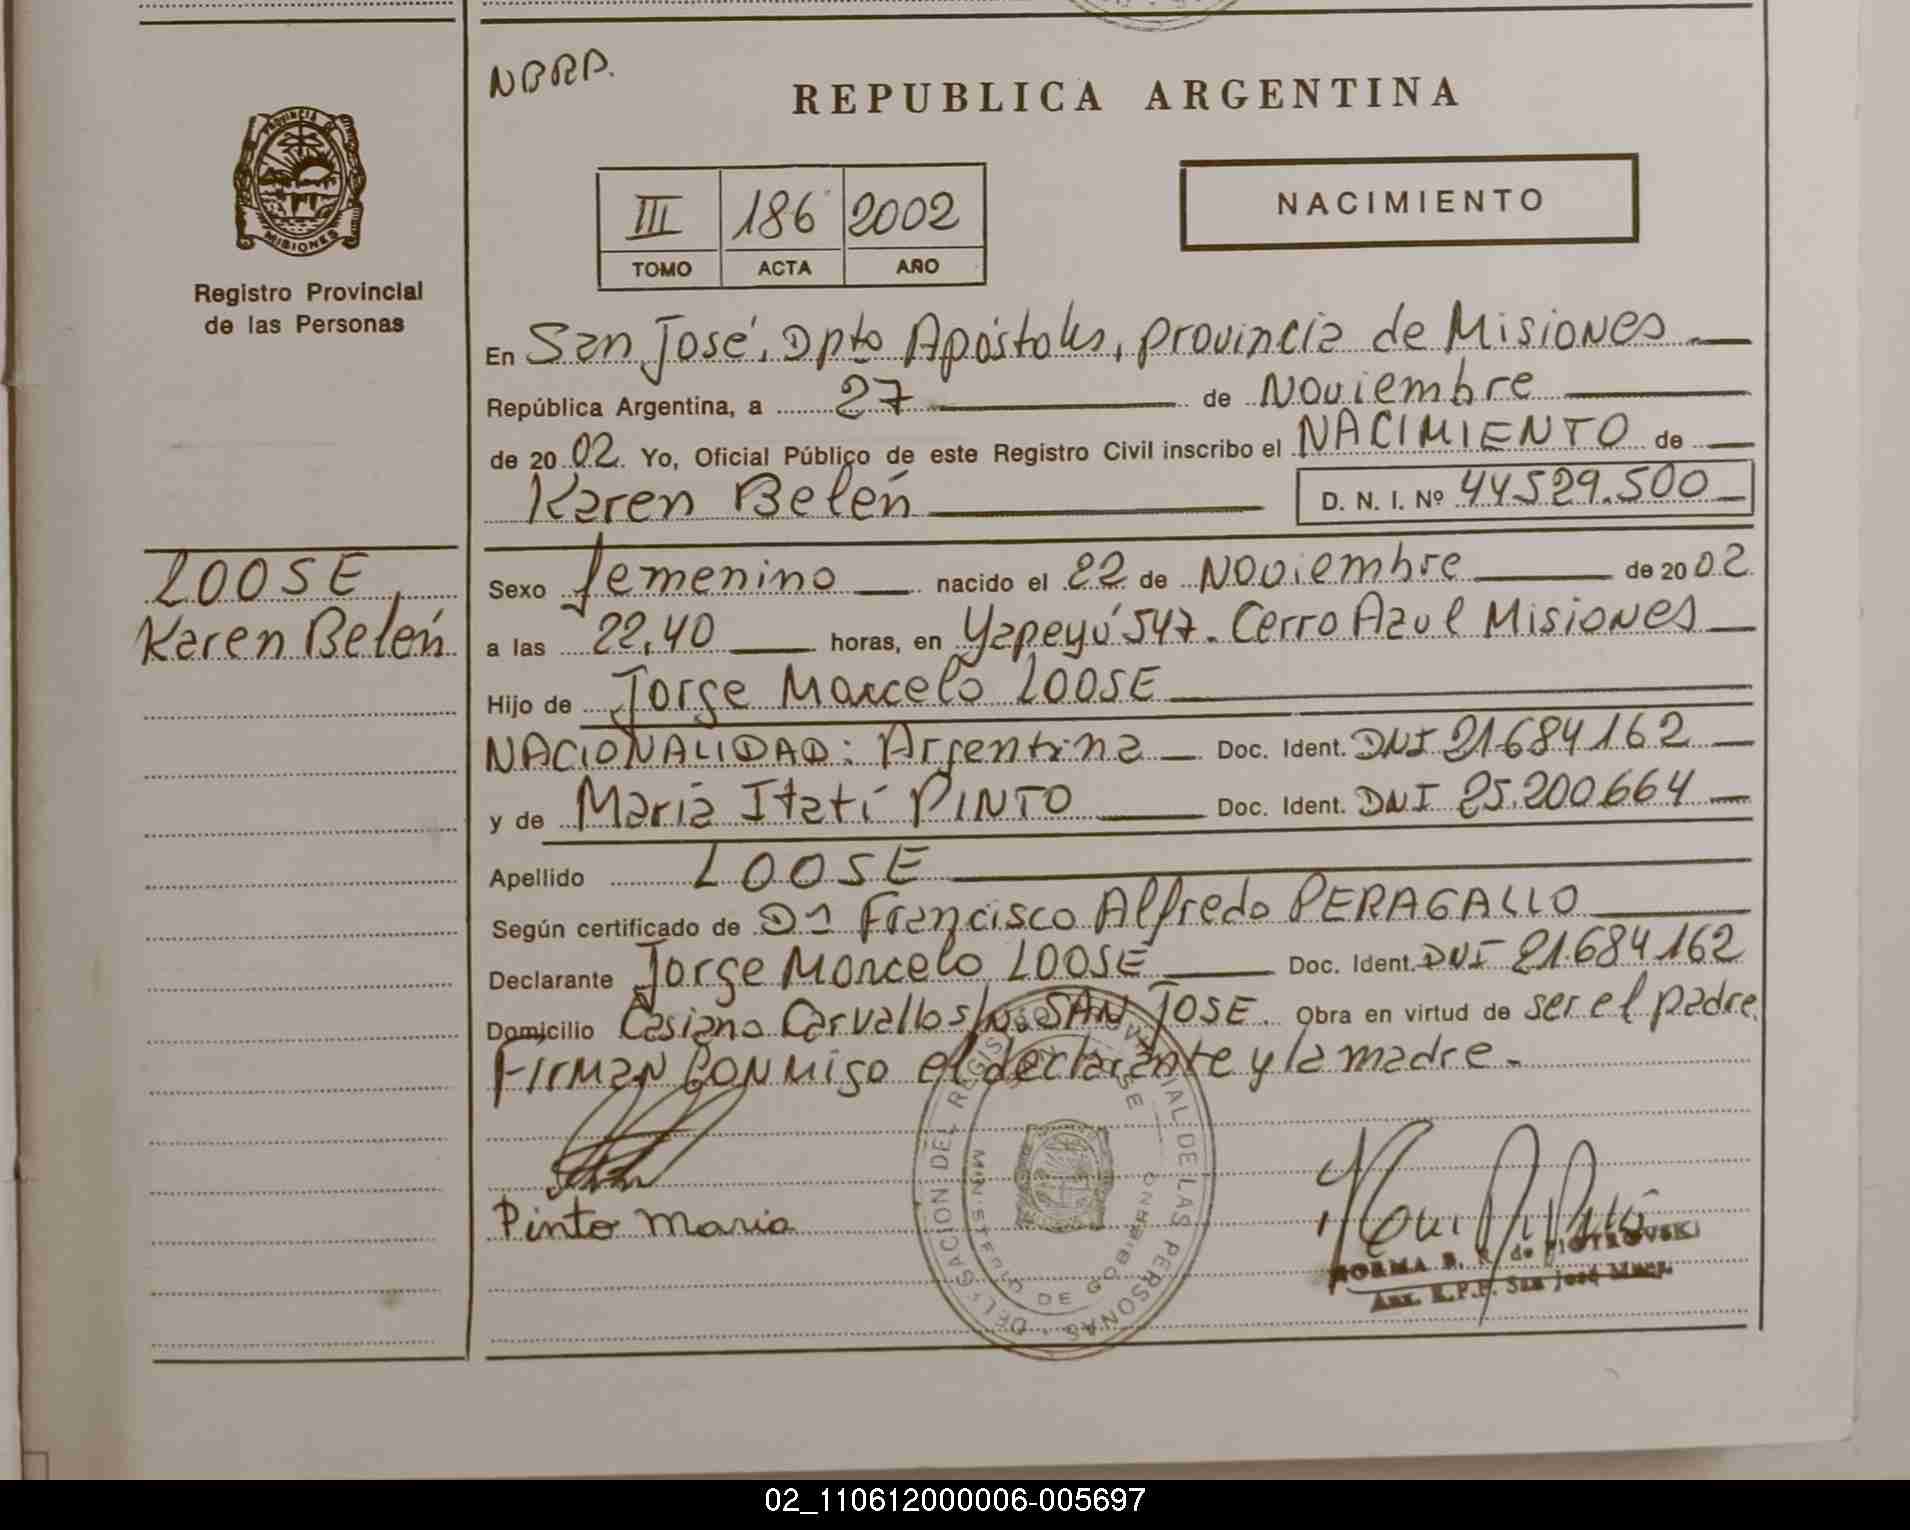 NBRP.
REPUBLICA ARGENTINA
PROVINCIA DE
MISIONES
Registro Provincial
de las Personas
III 186 2002
TOMO ACTA AÑO
NACIMIENTO
En San José, Dpto Apóstoles, provincia de Misiones
República Argentina, a 27 de Noviembre
de 2002. Yo, Oficial Público de este Registro Civil inscribo el NACIMIENTO de
Karen Belén D. N. I. Nº 44529.500
LOOSE
Karen Belén
Sexo femenino nacido el 22 de Noviembre de 2002.
a las 22,40 horas, en Yapeyú 547. Cerro Azul Misiones
Hijo de Jorge Marcelo LOOSE
NACIONALIDAD: Argentina Doc. Ident. DNI 21684162
y de María Itatí PINTO Doc. Ident. DNI 25.200664
Apellido LOOSE
Según certificado de Dr Francisco Alfredo PERAGALLO
Declarante Jorge Marcelo LOOSE Doc. Ident. DNI 21.684162
Domicilio Casiano Carvallo s/n. SAN JOSE. Obra en virtud de ser el padre.
Firman conmigo el declarante y la madre.
Pinto Maria
DELEGACION DEL REGISTRO PROVINCIAL DE LAS PERSONAS
MINISTERIO DE GOBIERNO
NORMA B. R. de PIOTROVSKI
Aux. R.P.P. San José Mnes.
02_110612000006-005697